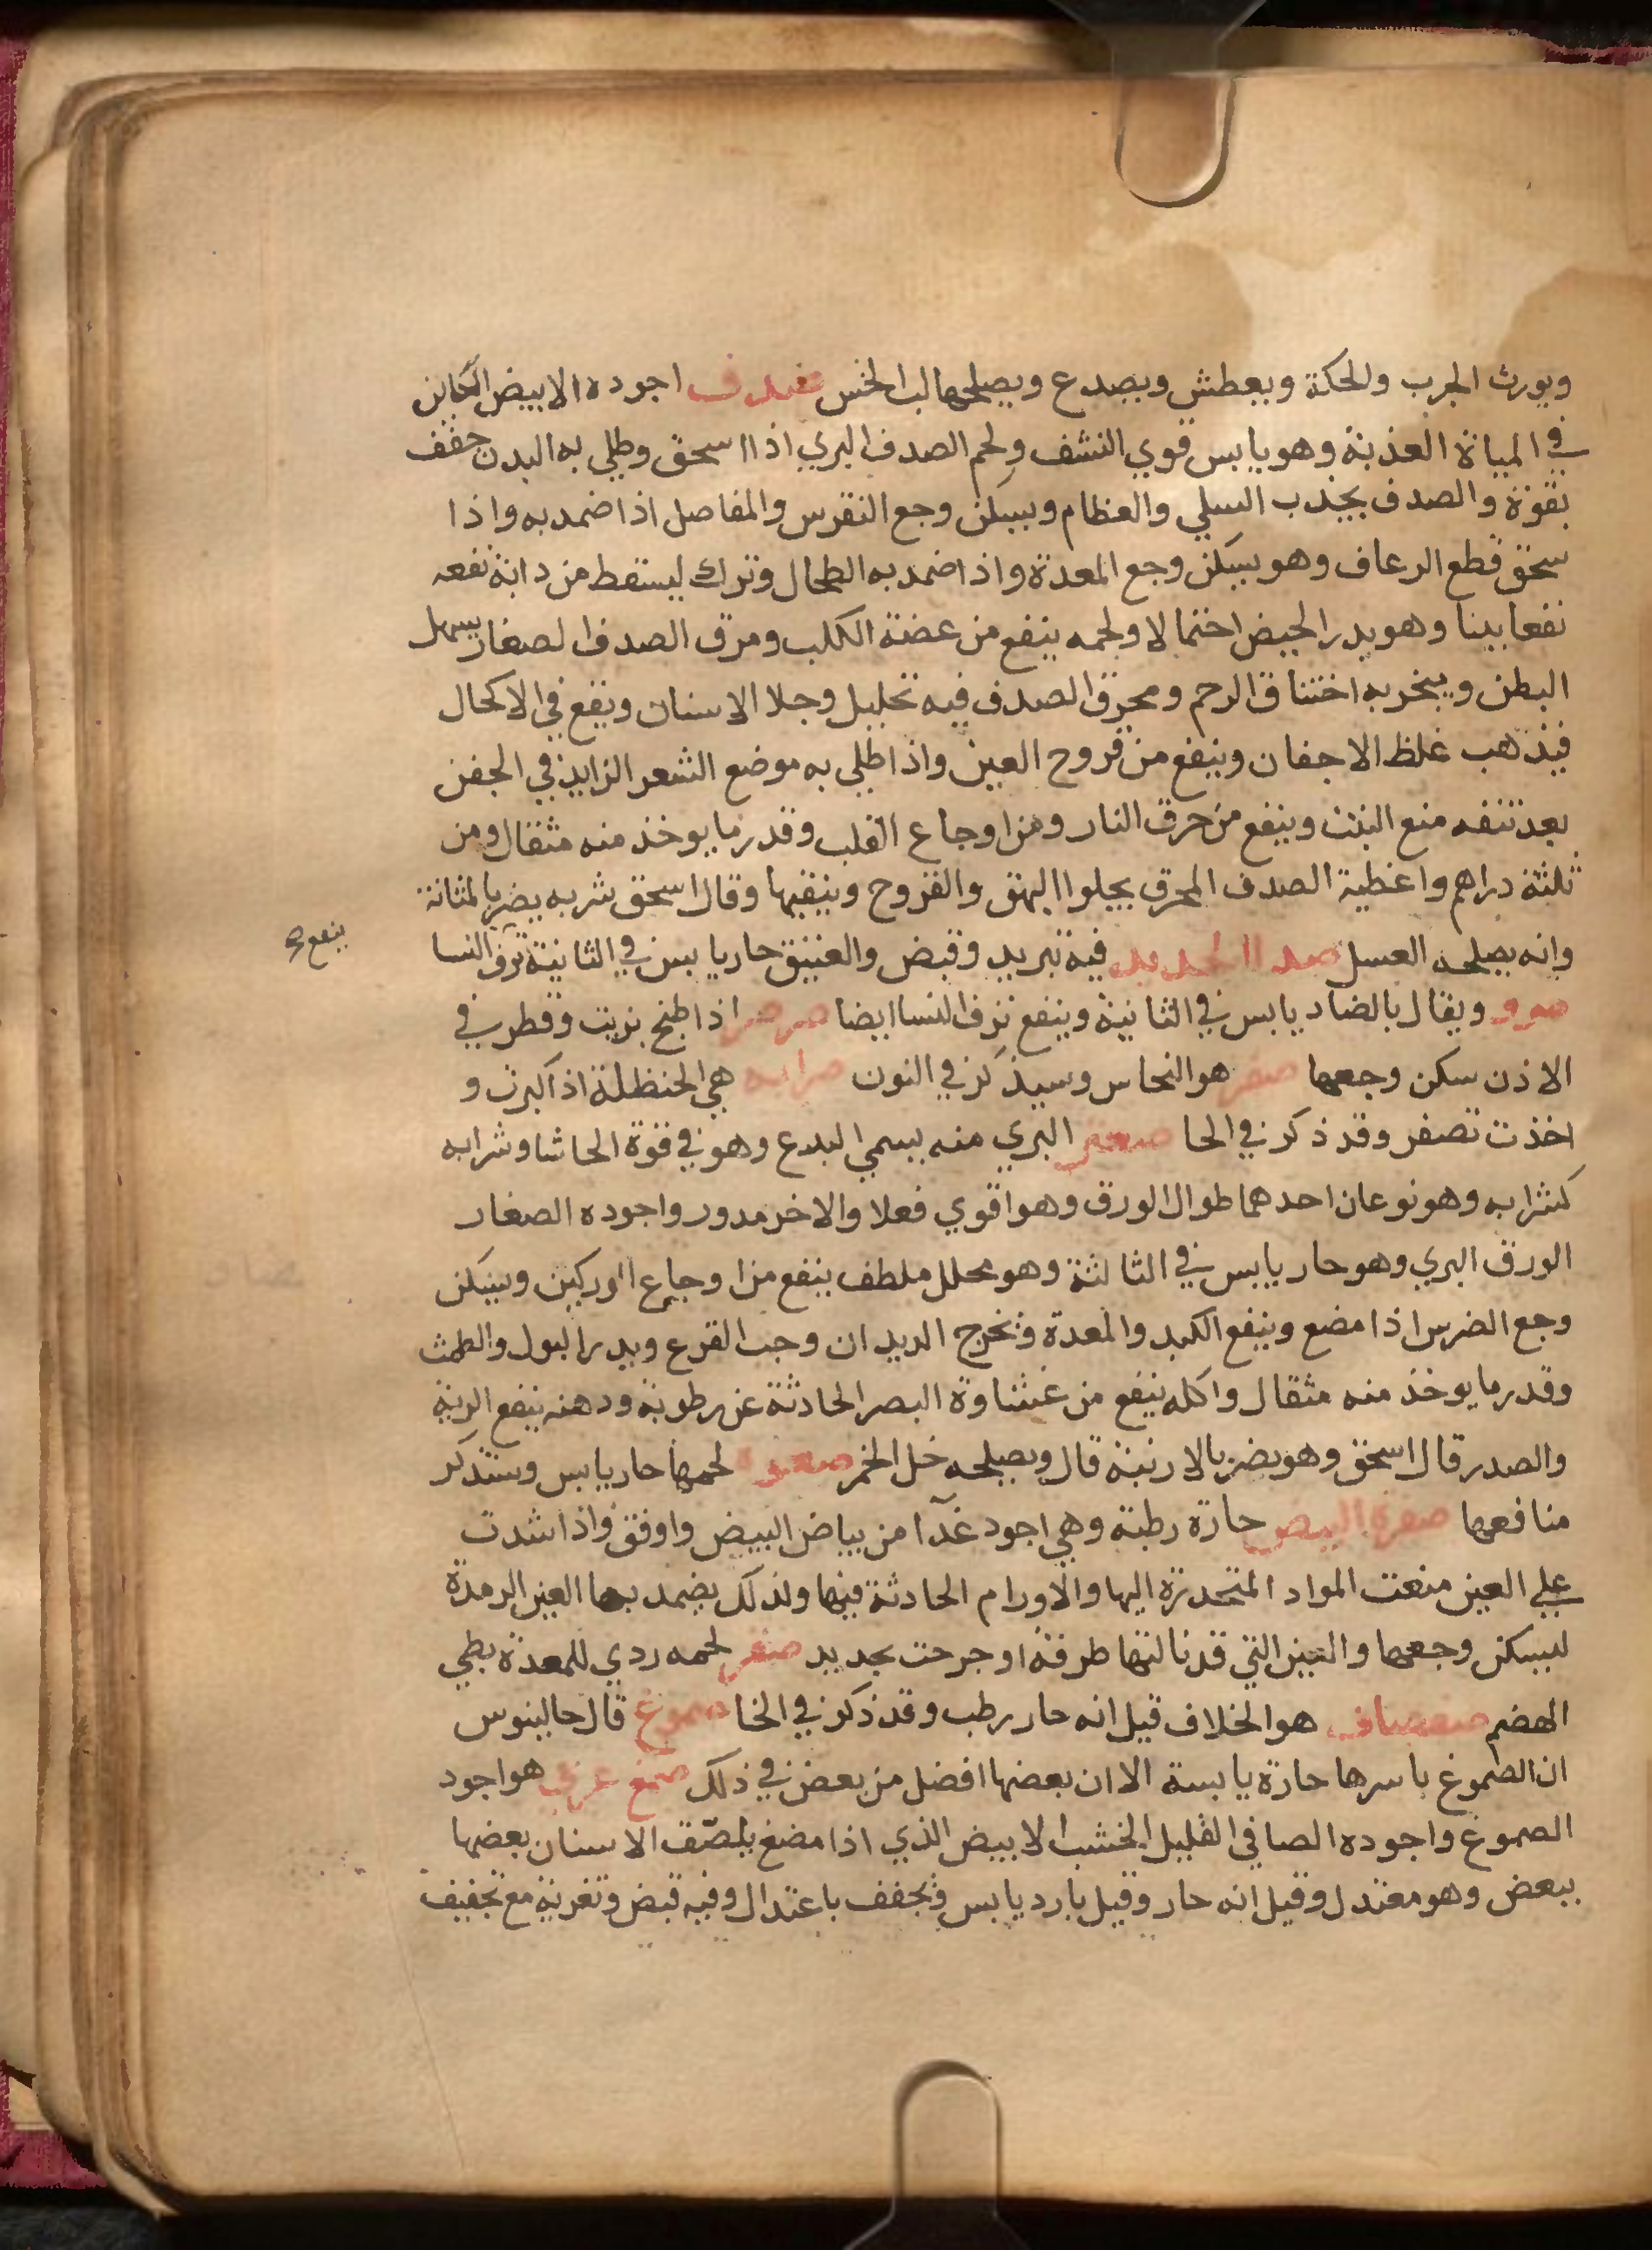 ويورث الجرب والحكة ويعطش ويصدع ويصلحها لب الخس صدف اجوده الابيض الكاين
في المياة العذبة وهو يابس قوي النشف ولحم الصدف البري اذا اسحق وطلي به البدن جفف
بقوة والصدف يجذب السلي والعظام ويسكن وجع النقرس والمفاصل اذا ضمد به واذا
سحق قطع الرعاف وهو يسكن وجع المعدة واذا ضمد به الطحال وترك ليسقط من ذاته نفعه
نفعا بينا وهو يدر الحيض احتمالا ولحمه ينفع من عضة الكلب ومرق الصدف الصغار يسهل
البطن ويبخر به اختناق الرحم ومحرق الصدف فيه تحليل وجلا الاسنان ويقع في الاكحال
فيذهب غلظ الاجفان وينفع من قروح العين واذا طلي به موضع الشعر الزايد في الجفن
بعد نتفه منع النبت وينفع من حرق النار ومن اوجاع القلب وقدر ما يوخذ منه مثقال ومن
ثلثة دراهم واغطية الصدف المحرق يجلوا البهق والقروح وينقيها وقال اسحق شربه يضر بالمثانة
وانه يصلحه العسل صدا الحديد فيه تبريد وقبض والعتيق حار يابس في الثانية نزف النسا
ينفع
صرو ويقال بالضاد يابس في الثانية وينفع نزف النسا ايضا صرصر اذا طبخ بزيت وقطر في
الاذن سكن وجعها صفر هو النحاس وسيذكر في النون صرابه هي الحنظلة اذا كبرت و
اخذت تصفر وقد ذكر في الحا صعتر البري منه يسمي البدع وهو في قوة الحاشا وشرابه
كشرابه وهو نوعان احدهما طوال الورق وهو اقوي فعلا والاخر مدور واجوده الصغار
الورق البري وهو حار يابس في الثالثة وهو محلل ملطف ينفع من اوجاع اوركين ويسكن
وجع الضرس اذا مضع وينفع الكبد والمعدة ويخرج الديدان وحب القرع ويدر البول والطمث
وقدر ما يوخذ منه مثقال واكله ينفع من غشاوة البصر الحادثة عن رطوبة ودهنه ينفع الرية
والصدر قال اسحق وهو يضر بالارنبة قال ويصلحه خل الخمر صعوة لحمها حار يابس وستذكر
منافعها صفرة البيض حارة رطبة وهي اجود غذآ من بياض البيض واوفق واذا شدت
علي العين منعت المواد المتحدرة اليها والاورام الحادثة فيها ولذلك يضمد بها العين الرمدة
ليسكن وجعها والعين التي قد نالتها طرفة او جرحت بحديد صقر لحمه ردي للمعدة بطي
الهضم صفصاف هو الخلاف قيل انه حار رطب وقد ذكر في الخا صموغ قال جالينوس
ان الصموغ باسرها حارة يابسة الا ان بعضها افضل من بعض في ذلك صمغ عربي هو اجود
الصموغ واجوده الصافي القليل الخشب الابيض الذي اذا مضغ يلصق الاسنان بعضها
ببعض وهو معتدل وقيل انه حار وقيل بارد يابس ويجفف باعتدال وفيه قبض وتغرية مع تجفيف